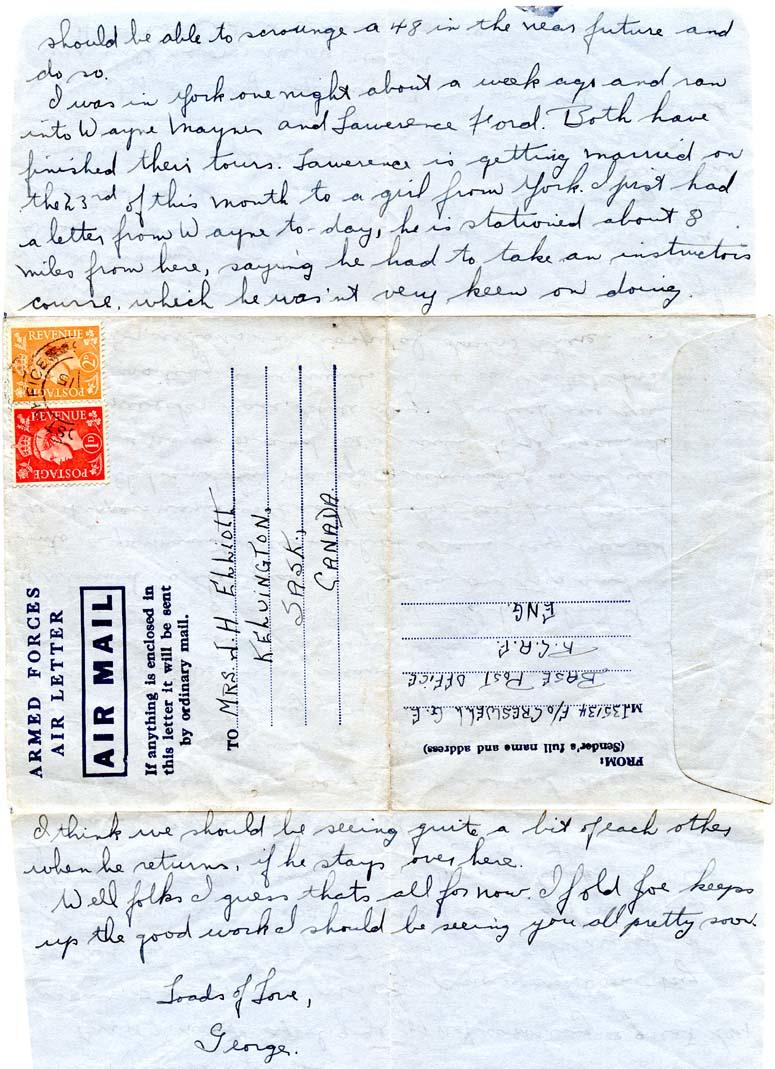 should be able to scrounge a 48 in the near future and
do so.
I was in York one night about a week ago and ran
into Wayne Mayner and Lawerence Ford. Both have
finished their tours. Lawerence is getting married on
the 23rd of this month to a girl from York. I just had
a letter from Wayne to-day, he is stationed about 8
miles from here, saying he had to take an instructors
course, which he was'nt very keen on doing.
REVENUE
2D
POSTAGE
REVENUE
1D
POSTAGE
ARMED FORCES
AIR LETTER
AIR MAIL
If anything is enclosed in
this letter it will be sent
by ordinary mail.
TO MRS. J. H ELLIOTT
KELVINGTON,
SASK.,
CANADA.
FROM:
(Sender's full name and address)
F/O CRESWELL G.E.
BASE POST OFFICE
R.C.A.F.
ENG.
I think we should be seeing quite a bit of each other
when he returns, if he stays over here.
Well folks I guess thats all for now. If old Joe keeps
up the good work I should be seeing you all pretty soon.
Loads of Love,
George.